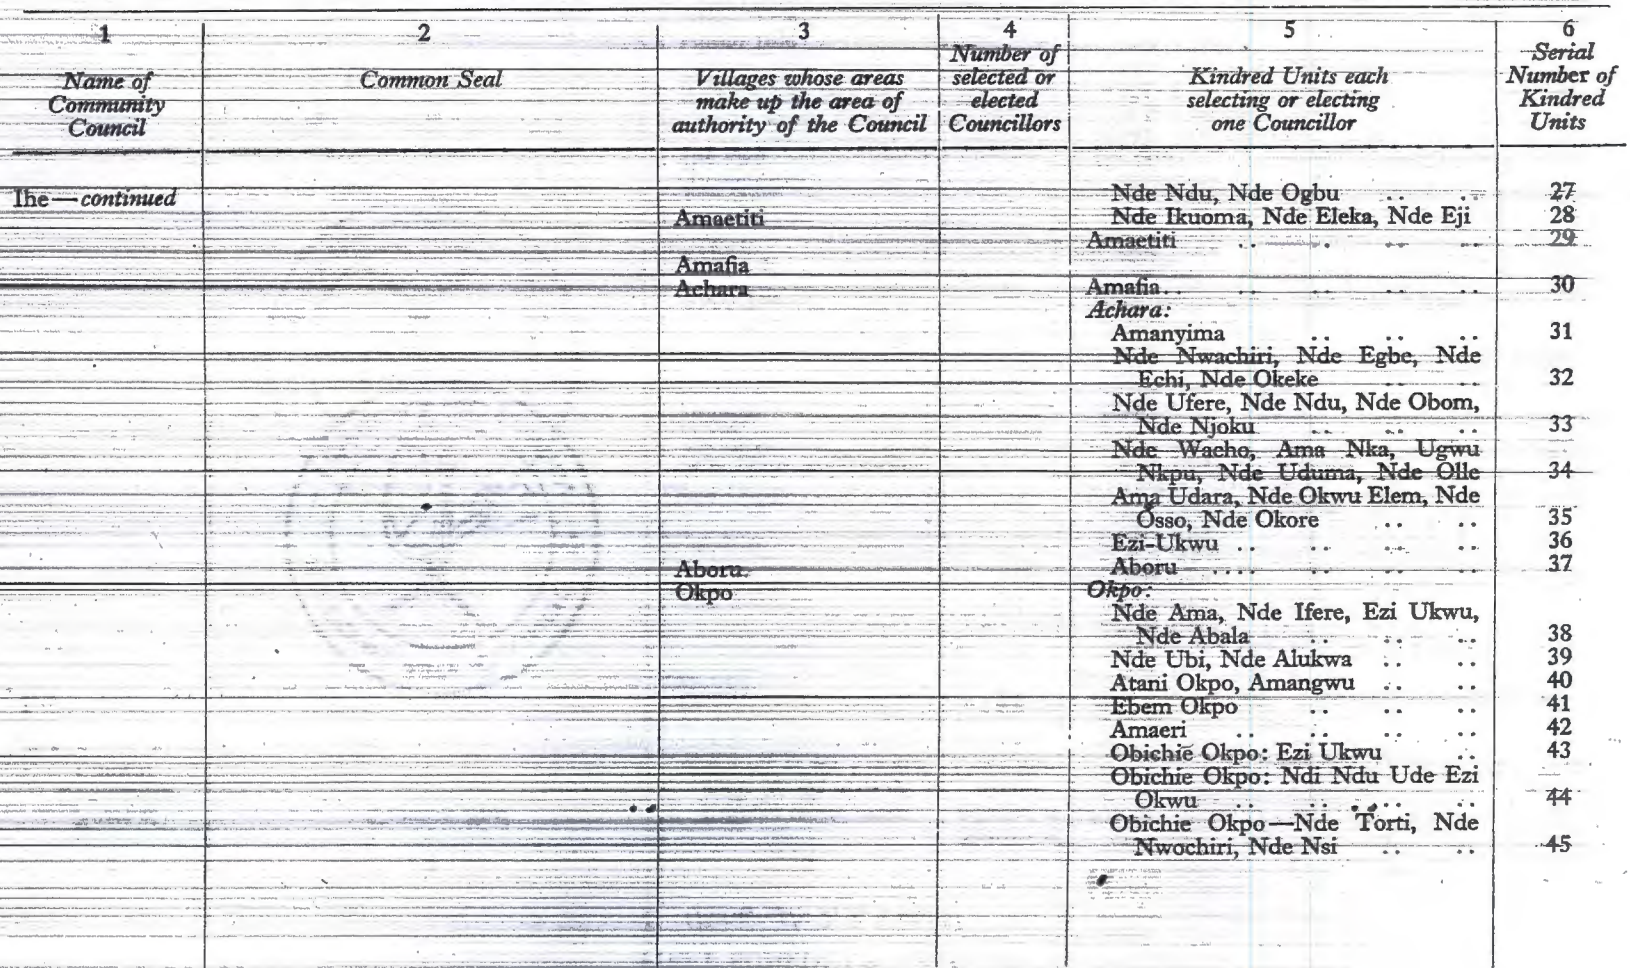 1 2 3 4 5 6
Name of Community Council
Common Seal
Villages whose areas make up the area of authority of the Council
Number of selected or elected Councillors
Kindred Units each selecting or electing one Councillor
Serial Number of Kindred Units
Ihe—continued
Nde Ndu, Nde Ogbu .. .. 27
Amaetiti Nde Ikuoma, Nde Eleka, Nde Eji 28
Amaetiti .. .. .. .. 29
Amafia
Achara Amafia .. .. .. .. .. 30
Achara:
Amanyima .. .. .. 31
Nde Nwachiri, Nde Egbe, Nde
Echi, Nde Okeke .. .. 32
Nde Ufere, Nde Ndu, Nde Obom,
Nde Njoku .. .. .. 33
Nde Wacho, Ama Nka, Ugwu
Nkpu, Nde Uduma, Nde Olle 34
Ama Udara, Nde Okwu Elem, Nde
Osso, Nde Okore .. .. 35
Ezi-Ukwu .. .. .. .. 36
Aboru Aboru .. .. .. .. .. 37
Okpo Okpo:
Nde Ama, Nde Ifere, Ezi Ukwu,
Nde Abala .. .. .. 38
Nde Ubi, Nde Alukwa .. .. 39
Atani Okpo, Amangwu .. .. 40
Ebem Okpo .. .. .. 41
Amaeri .. .. .. .. 42
Obichie Okpo: Ezi Ukwu .. 43
Obichie Okpo: Ndi Ndu Ude Ezi
Okwu .. .. .. .. 44
Obichie Okpo—Nde Torti, Nde
Nwochiri, Nde Nsi .. .. 45